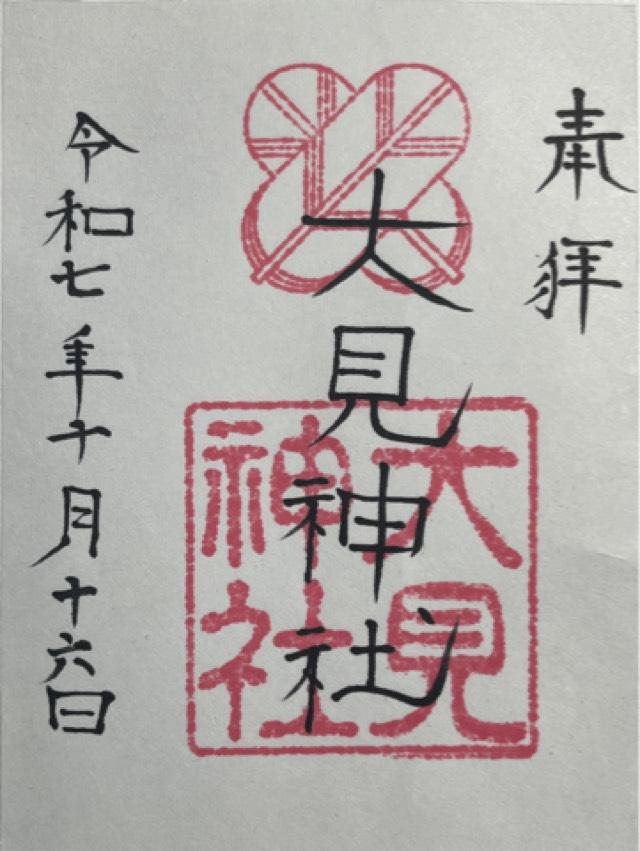 奉拝
大見神社
大見
神社
令和七年十月十六日